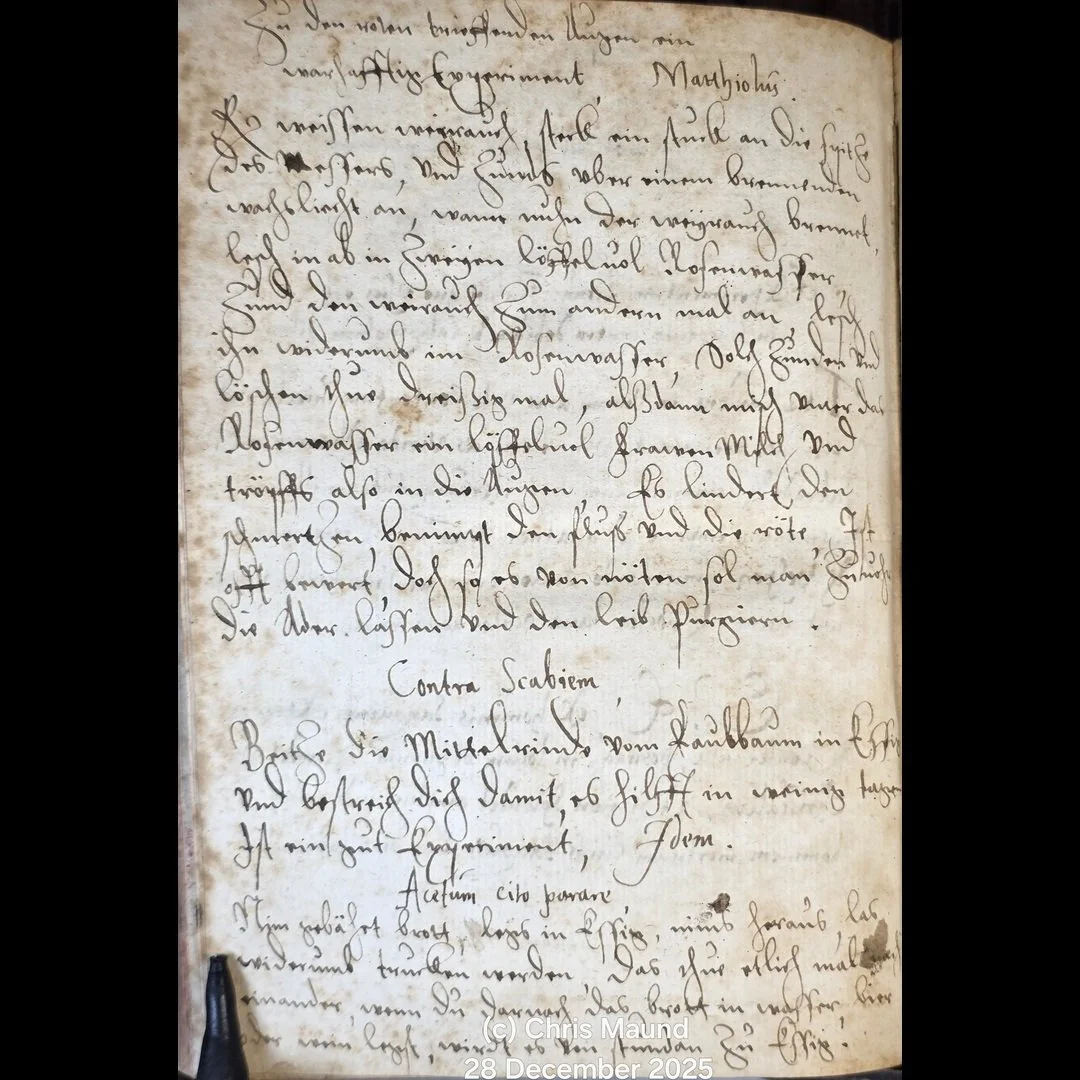 Zu den roten trieffenden Augen ein
warhafftig Experiment, Matthiolus.
Rx weissen weirauch, steck ein stuck an die spitze
des Messers, vnd Zünds vber einem brennenden
wachsliecht an, wann nuhn der weyrauch brennet,
lesch in ab in Zweyen löffel uol Rosenwasser,
Zünd den weirauch Zum andern mal an, lesch
ihn widerumb im Rosenwasser, Solch Zünden vnd
löschen thue dreissig mal, alssdann misch vnter das
Rosenwasser ein löffeluol Frawen Milch, vnd
tröpffs also in die Augen, Es lindert den
schmertzen, benimpt den fluss vnd die röte, Ist
offt bewert, doch so es von nöten sol man Zuuohr
die Ader lassen vnd den leib Purgiern.
Contra Scabiem,
Beitze die Mittelrinde vom Faulbaum in Essig
vnd bestreich dich damit, es hilfft in weinig tagen
Ist ein gut Experiment, Idem.
Acetum cito parare,
Nim gebähet brott, legs in Essig, nims heraus, las
widerumb trucken werden, Das thue etlich mal nach
einander, wenn du darnach das brott in wasser, bier
oder wein legst, wirdt es von stundan Zu Essig.
(c) Chris Maund
28 December 2025